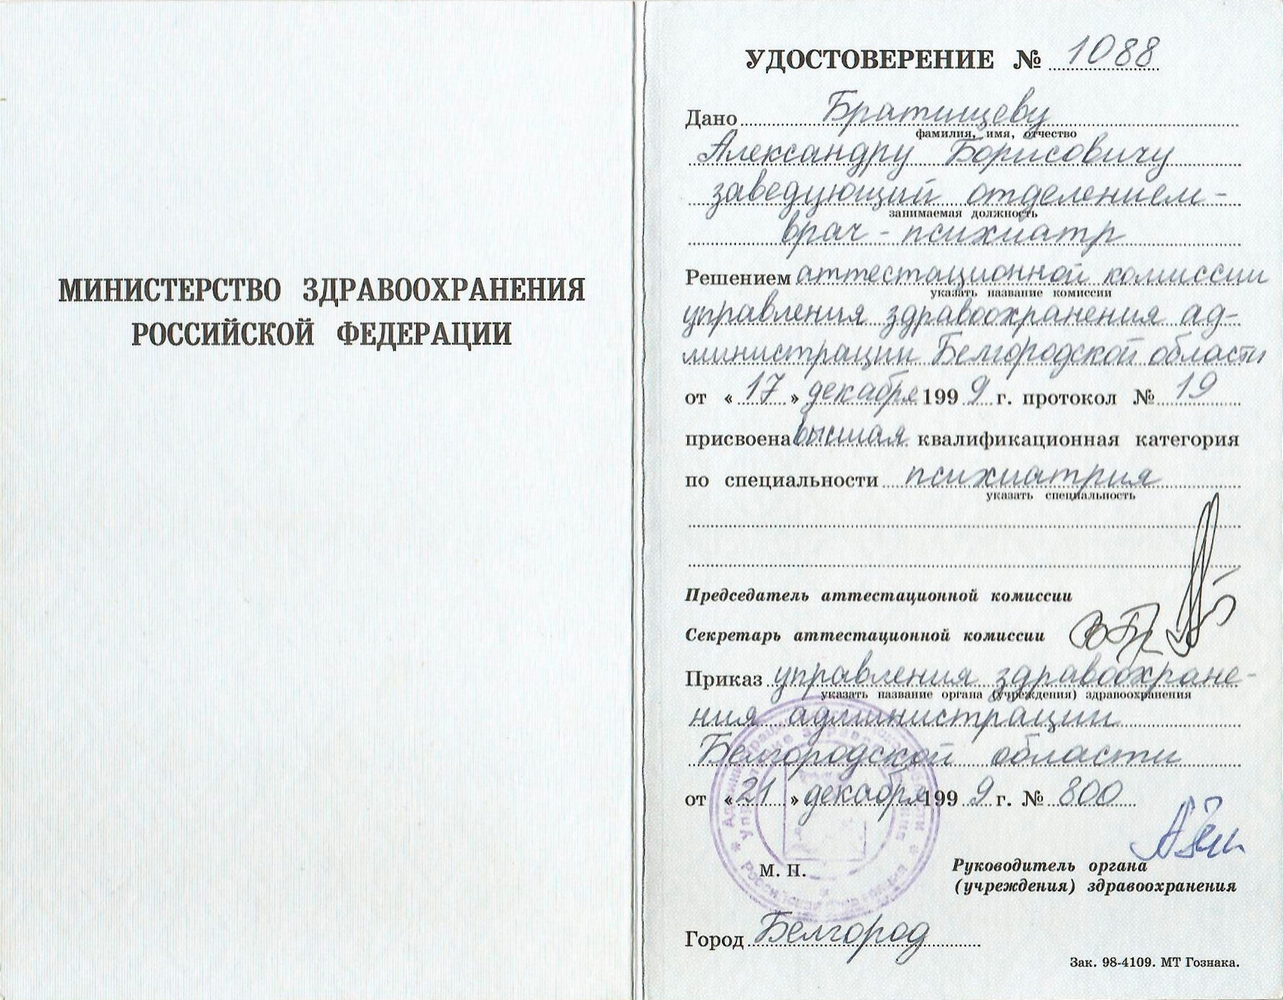 МИНИСТЕРСТВО ЗДРАВООХРАНЕНИЯ
РОССИЙСКОЙ ФЕДЕРАЦИИ
УДОСТОВЕРЕНИЕ № 1088
Дано Братищеву
фамилия, имя, отчество
Александру Борисовичу
заведующий отделением-
занимаемая должность
врач - психиатр
Решением аттестационной комиссии
указать название комиссии
управления здравоохранения ад-
министрации Белгородской области
от «17» декабря 1999 г. протокол № 19
присвоена высшая квалификационная категория
по специальности психиатрия
указать специальность
Председатель аттестационной комиссии
Секретарь аттестационной комиссии
Приказ управления здравоохране-
указать название органа (учреждения) здравоохранения
ния администрации
Белгородской области
от «21» декабря 1999 г. № 800
М. П.
Руководитель органа
(учреждения) здравоохранения
Город Белгород
Зак. 98-4109. МТ Гознака.